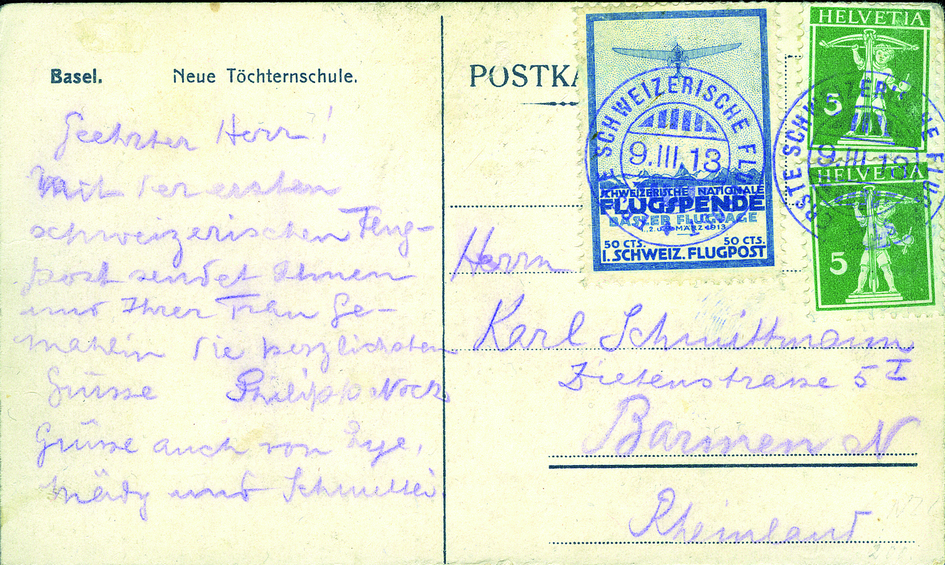 Basel. Neue Töchternschule.
Geehrter Herr!
Mit der ersten
schweizerischen Flug-
post sendet Ihnen
und Ihrer Frau Ge-
mahlin die herzlichsten
Grüsse Philipp Nock
Grüsse auch von
Mädy und
POSTKA
SCHWEIZERISCHE FLUG
9.III.13
SCHWEIZERISCHE NATIONALE
FLUGSPENDE
BASLER FLUGTAGE
MÄRZ 1913
50 CTS. 50 CTS.
I. SCHWEIZ. FLUGPOST
HELVETIA
5
ERSTE SCHWEIZERISCHE FLUG
9.III.13
HELVETIA
5
Herrn
Karl Schmittmann
5 I
Barmen N
Rheinland